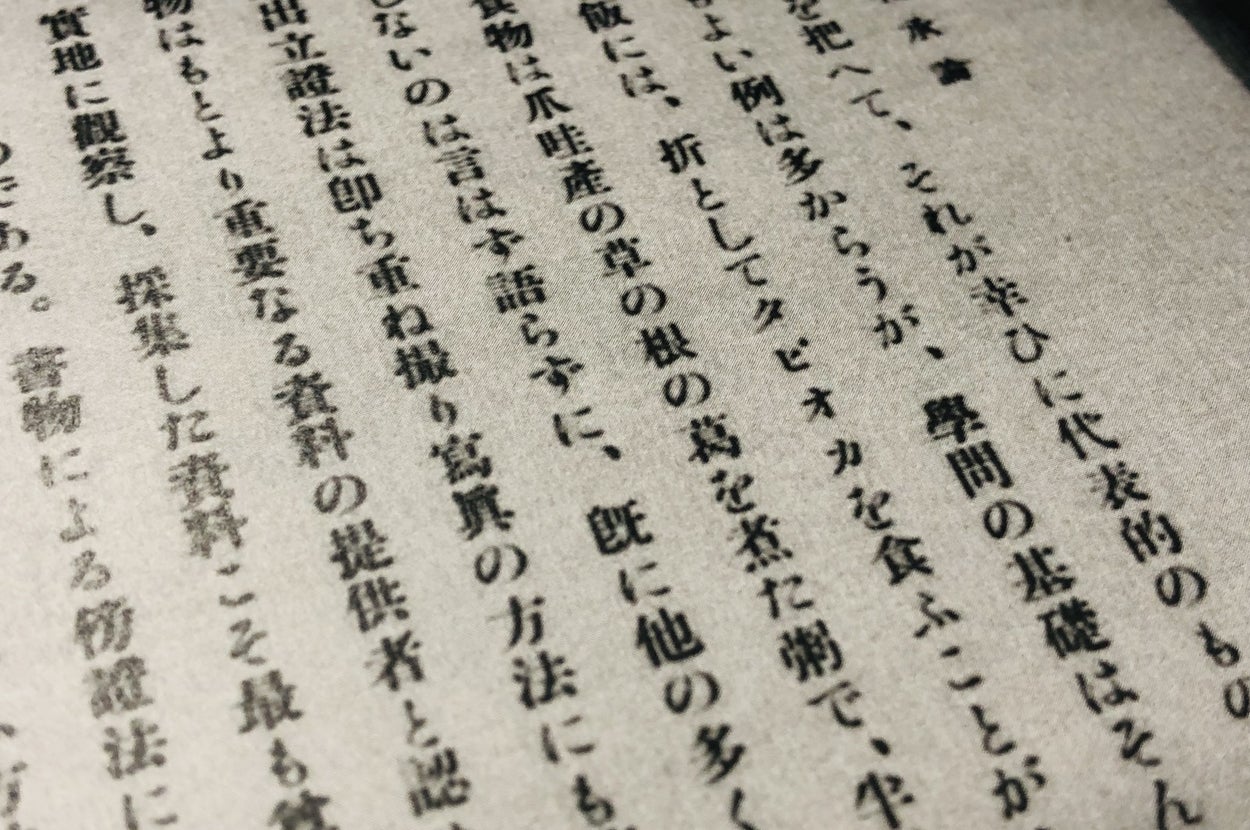 承論
を把へて、これが幸ひに代表的のもの
よい例は多からうが、學問の基礎はそん
飯には、折としてタピオカを食ふことが
食物は爪哇産の草の根の葛を煮た粥で、牛
しないのは言はず語らずに、既に他の多く
出立證法は卽ち重ね撮り寫眞の方法にも
物はもとより重要なる資料の提供者と認
實地に觀察し、採集した資料こそ最も貴
のである。書物による傍證法に